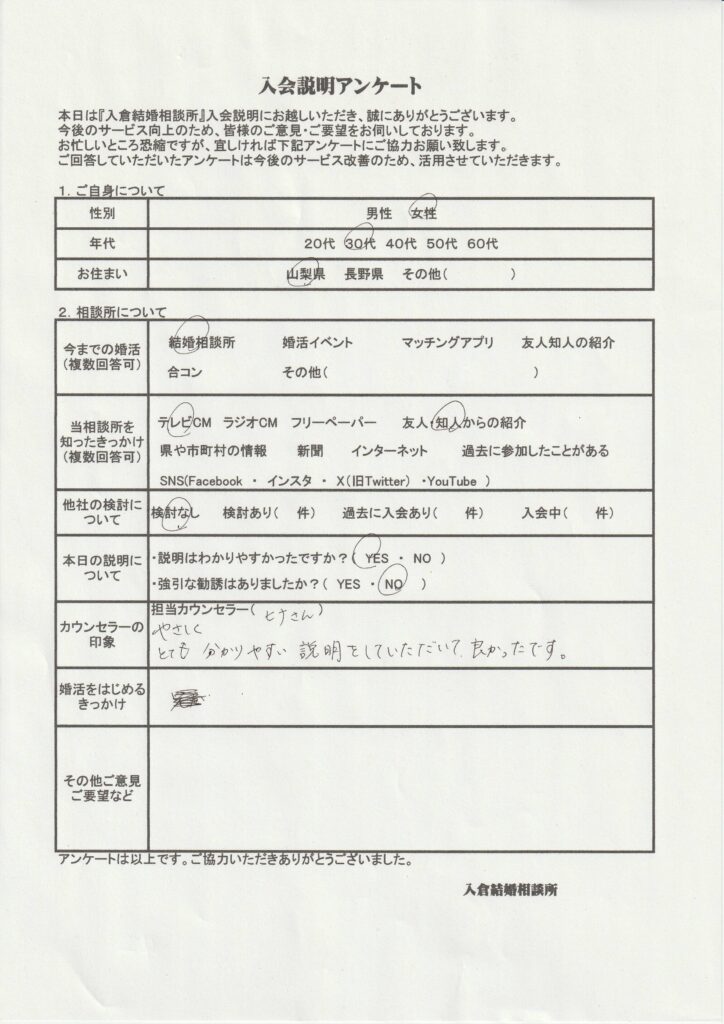 入会説明アンケート
本日は『入倉結婚相談所』入会説明にお越しいただき、誠にありがとうございます。
今後のサービス向上のため、皆様のご意見・ご要望をお伺いしております。
お忙しいところ恐縮ですが、宜しければ下記アンケートにご協力お願い致します。
ご回答していただいたアンケートは今後のサービス改善のため、活用させていただきます。
1．ご自身について
性別 男性 女性
年代 20代 30代 40代 50代 60代
お住まい 山梨県 長野県 その他( )
2．相談所について
今までの婚活
(複数回答可)
結婚相談所 婚活イベント マッチングアプリ 友人知人の紹介
合コン その他( )
当相談所を
知ったきっかけ
(複数回答可)
テレビCM ラジオCM フリーペーパー 友人・知人からの紹介
県や市町村の情報 新聞 インターネット 過去に参加したことがある
SNS(Facebook ・ インスタ ・ X(旧Twitter) ・YouTube )
他社の検討に
ついて
検討なし 検討あり( 件) 過去に入会あり( 件) 入会中( 件)
本日の説明に
ついて
・説明はわかりやすかったですか？( YES ・ NO )
・強引な勧誘はありましたか？( YES ・ NO )
カウンセラーの
印象
担当カウンセラー( さん)
やさしく
とても 分かりやすい 説明をしていただいて、良かったです。
婚活をはじめる
きっかけ
その他ご意見
ご要望など
アンケートは以上です。ご協力いただきありがとうございました。
入倉結婚相談所